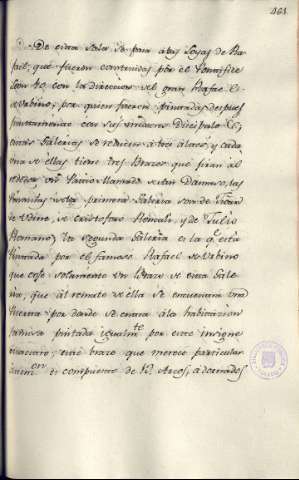 461
De esta Sala se pasa a las Loxas de Rafael, que fueron construidas por el Pontifice
Leon 10, con la direccion del gran Rafael de
Urbino, por quien fueron pintadas despues
juntamente con sus Discipulos;
estas Galerias se reducen a tres alas, y cada
una de ellas tiene tres Brazos que giran al
rededor un Patio llamado de San Damaso, las
Pinturas de la primera Galeria son de Juan
de Udine, de Cristoforo Roncali, y de Julio
Romano; la segunda Galeria es la q.e está
Pintada por el famoso Rafael de Urbino
que coje solamente un brazo de esta Galeria, que al remate de ella se encuentra una
Puerta por donde se entra a la habitacion
pintada igualm.te por este insigne
este brazo que merece particular
atenc.on se compone de 13 Arcos, adornados